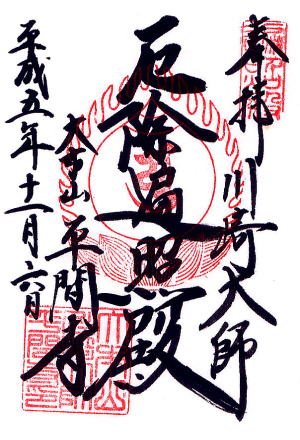 奉拝 川崎大師
厄除遍照殿
大本山 平間寺
平成五年十一月六日